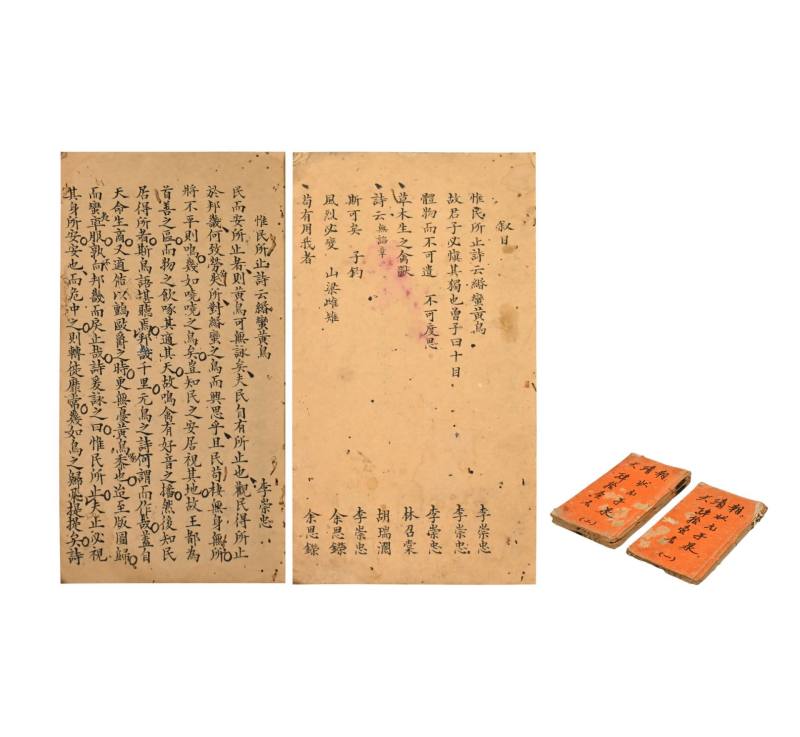 敘目
惟民所止詩云緡蠻黃鳥
故君子必慎其獨也曾子曰十目
體物而不可遺 不可度思
草木生之禽獸
詩云
斯可矣 子釣
風烈必變 山梁雌雉
苟有用我者
李崇忠
李崇忠
李崇忠
林召棠
胡瑞瀾
李崇忠
余思鑅
余思鑅
惟民所止詩云緡蠻黃鳥
李崇忠
民而安所止者則黃鳥可無詠矣夫民自有所止也觀民得所止
於邦畿何致勞矣所對緡蠻之鳥而興思乎且民苟棲身無所
將不平則鳴幾如嘵嘵之鳥矣豈知民之安居視其地故王都為
首善之區而物之飲啄其適其天故鳴禽有好音之播然後知民
居得所者斯鳥語堪聽焉邦畿千里元鳥之詩何謂而作哉蓋自
天命生商又適循以鸇毆爵之時更無憂黃鳥黍也迨至版圖歸
而蠻草服孰向邦畿而戾止哉詩爰詠之曰惟民所止夫止必視
其身所安安也而危冲之則轉徙靡常幾如鳥之歸飛提提矣詩
(二)
(一)